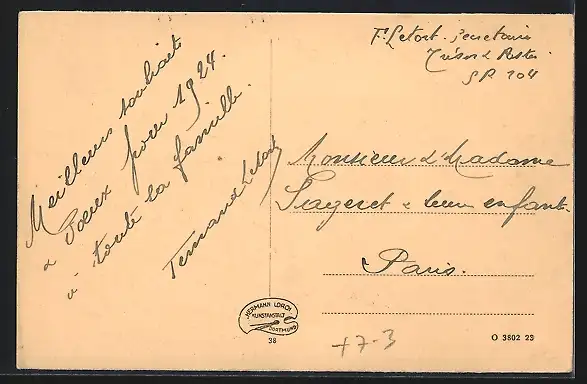 Meilleurs souhaits
& Voeux pour 1924.
à toute la famille.
Fernand Letort
F. Letort. Secrétaire
Trésor & Postes
SP 204
Monsieur & Madame
Sageret & leurs enfants
Paris.
HERMANN LORCH
KUNSTANSTALT
DORTMUND
38
+7-3
O 3802 23